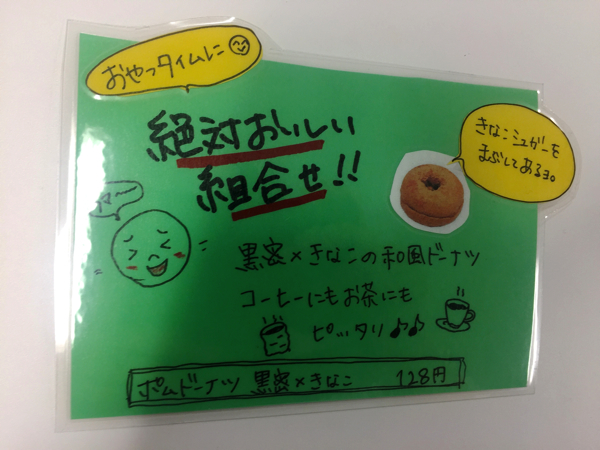 おやつタイムに
絶対おいしい
組合せ!!
きなこシュガーを
まぶしてあるヨ。
黒蜜×きなこの和風ドーナツ
コーヒーにもお茶にも
ピッタリ♪♪
ポムドーナツ 黒蜜×きなこ 128円